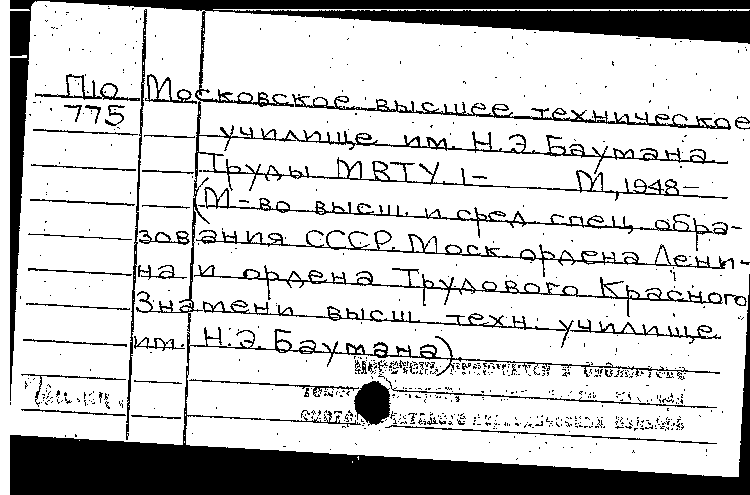 П10 Московское высшее техническое
775 училище им. Н.Э. Баумана
Труды МВТУ. 1- М., 1948-
(М-во высш. и сред. спец. обра-
зования СССР. Моск. ордена Лени-
на и ордена Трудового Красного
Знамени высш. техн. училище
им. Н.Э. Баумана).
Перечень имеющихся в библиотеке